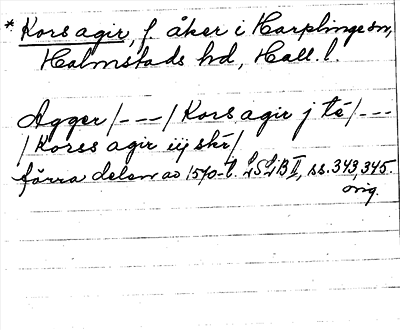 * Kors agir, f åker i Harplinge sn,
Halmstads hd, Hall. l.
Agger /---/ Kors agir j té /---
/ Korss agir iij skr /
förra delen av 1570-t. LSLB II, ss. 343, 345.
orig.